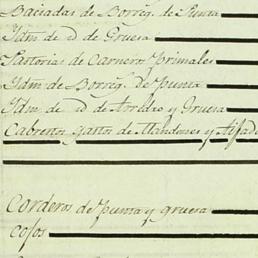 Baciadas de Borreg. de Punta
Ydm. de id de Gruesa
Pastorias de Carneros Primales
Ydm. de Borreg. de Punta
Ydm. de id de Arredro y Gruesa
Cabrestos gastos de Mandones y
Corderos de punta y gruesa
cojos